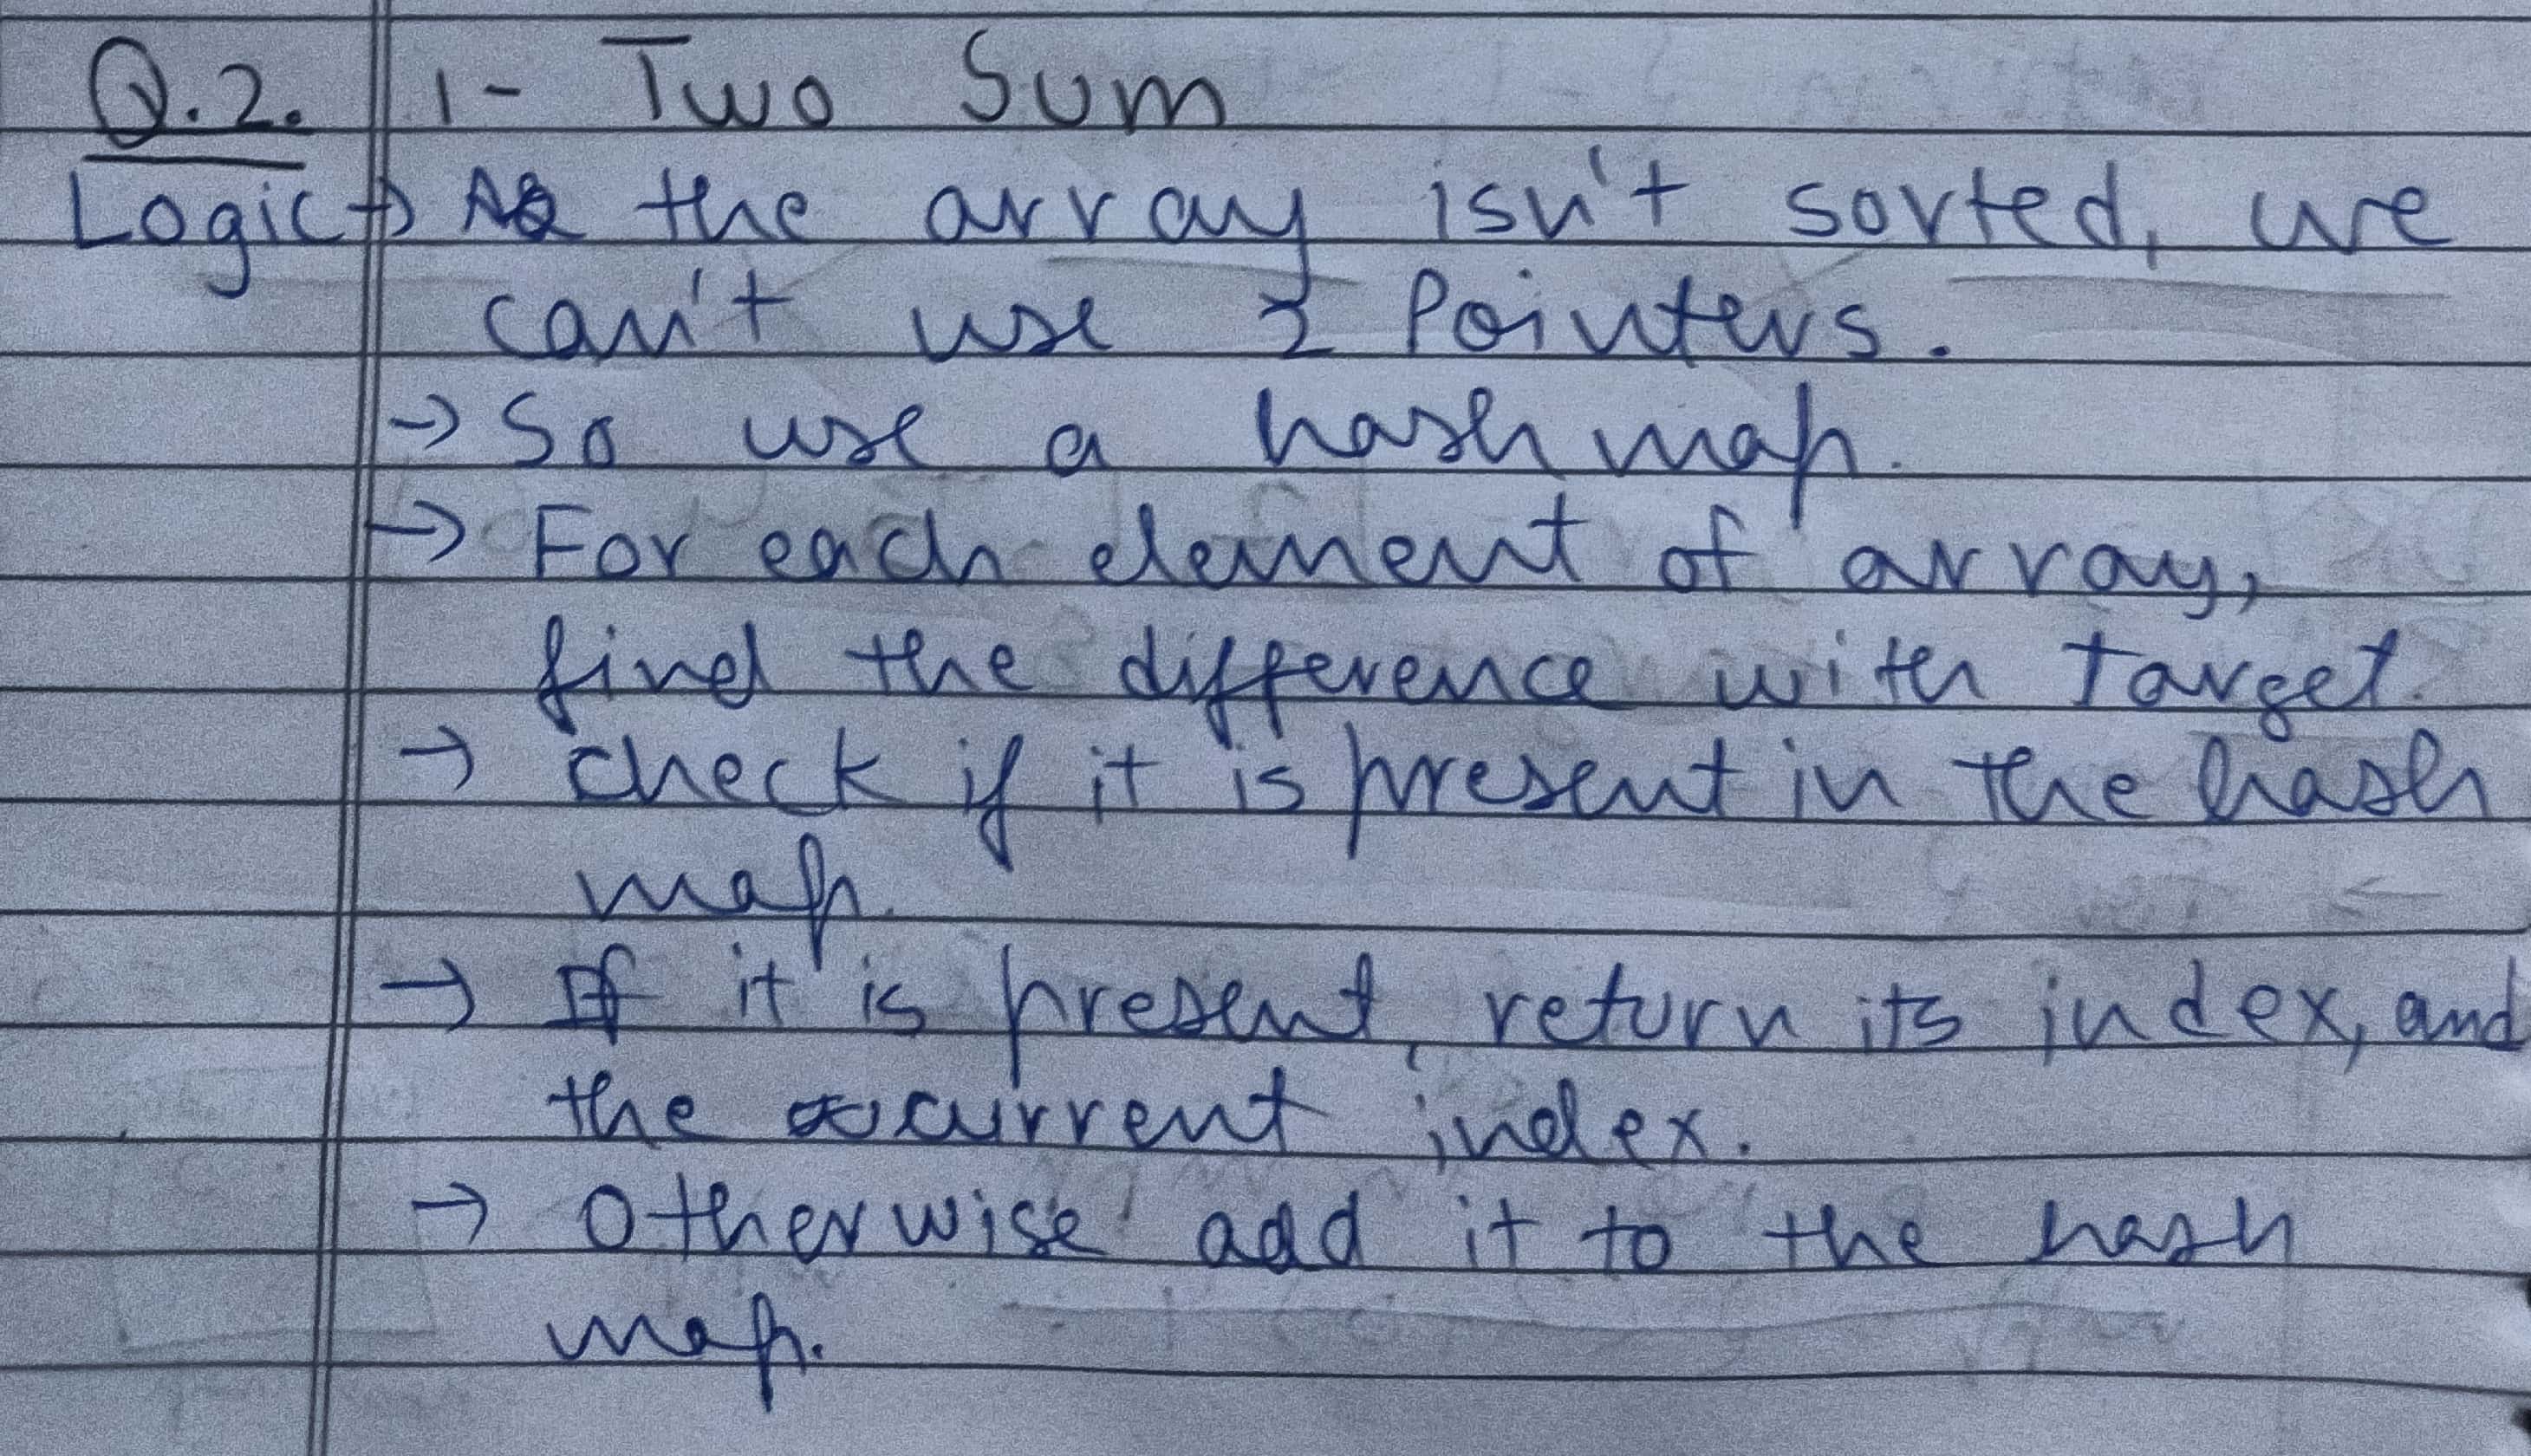 Q.2. 1- Two Sum
Logic → As the array isn't sorted, we
can't use 2 Pointers.
→ So use a hash map.
→ For each element of array,
find the difference with target.
→ check if it is present in the hash
map.
→ If it is present, return its index, and
the current index.
→ Otherwise add it to the hash
map.